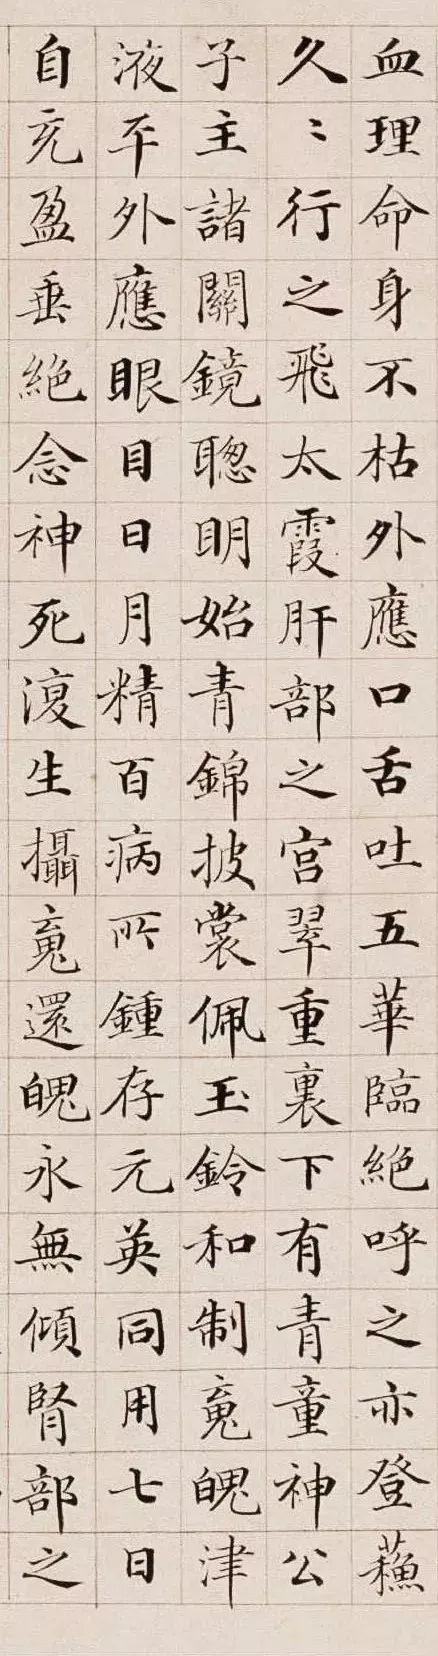 血理命身不枯外應口舌吐五華臨絕呼之亦登蘓
久〻行之飛太霞肝部之宮翠重裏下有青童神公
子主諸關鏡聰明始青錦披裳佩玉鈴和制䰟魄津
液平外應眼目日月精百病所鍾存元英同用七日
自充盈垂絕念神死澓生攝䰟還魄永無傾腎部之